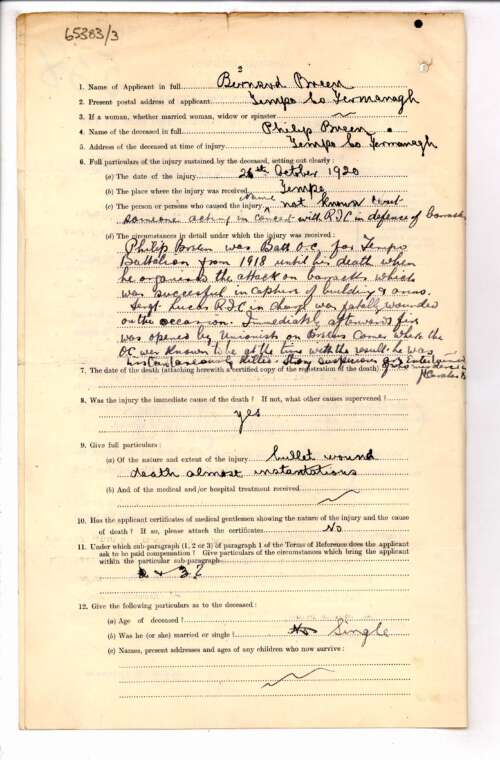 65383/3
2
1. Name of Applicant in full Bernard Breen
2. Present postal address of applicant Tempo Co Fermanagh
3. If a woman, whether married woman, widow or spinster
4. Name of the deceased in full Philip Breen
5. Address of the deceased at time of injury Tempo Co Fermanagh
6. Full particulars of the injury sustained by the deceased, setting out clearly:
(a) The date of the injury 26th October 1920
(b) The place where the injury was received Tempo
(c) The person or persons who caused the injury Name not known
someone acting in concert with R.I.C in defence of barracks
(d) The circumstances in detail under which the injury was received:
Philip Breen was Batt O.C. for Tempo
Battalion from 1918 until his death when
he organised the attack on barracks which
was successful in capture of building & arms.
Sergt. Lucas R.I.C in charge was fatally wounded
on the occasion. Immediately afterwards fire
was opened by Unionists on Breens Corner where the
OC was known to be at the time with the result he was
7. The date of the death (attaching herewith a certified copy of the registration of the death)
8. Was the injury the immediate cause of the death? If not, what other causes supervened?
yes
9. Give full particulars:
(a) Of the nature and extent of the injury bullet wound
death almost instantations
(b) And of the medical and/or hospital treatment received
10. Has the applicant certificates of medical gentlemen showing the nature of the injury and the cause
of death? If so, please attach the certificates No
11. Under which sub-paragraph (1, 2 or 3) of paragraph 1 of the Terms of Reference does the applicant
ask to be paid compensation? Give particulars of the circumstances which bring the applicant
within the particular sub-paragraph
2 & 3?
12. Give the following particulars as to the deceased:
(a) Age of deceased?
(b) Was he (or she) married or single? No Single
(c) Names, present addresses and ages of any children who now survive: